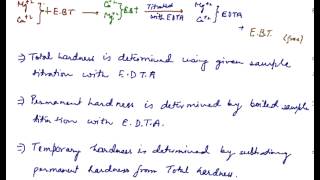 Mg²⁺ Ca²⁺ } + E.BT → Ca²⁺ Mg²⁺ } EBT Titrated with EDTA → Mg²⁺ Ca²⁺ } EDTA
+
E.B.T. (free)
⇒ Total hardness is determined using given sample
titration with E.D.T.A
⇒ Permanent hardness is determined by boiled sample
titration with E.D.T.A.
⇒ Temporary hardness is determined by subtrating
permanent hardness from Total hardness.